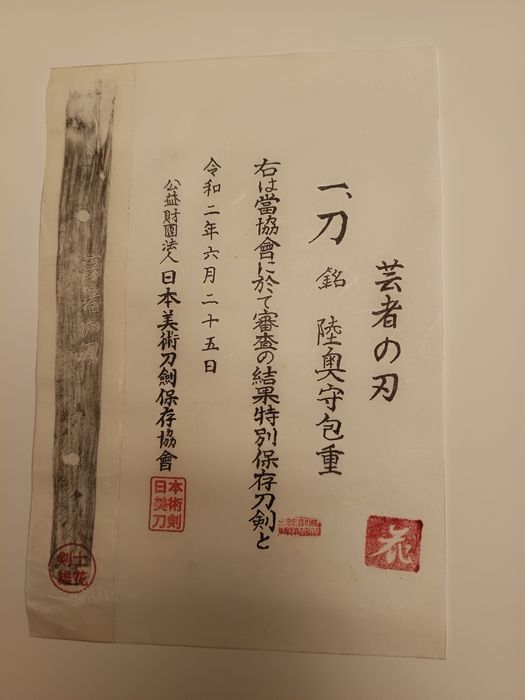 芸者の刃
一、刀 銘 陸奥守包重
右は當協會に於て審査の結果特別保存刀剣と
令和二年六月二十五日
公益財團法人 日本美術刀劍保存協會
日本美術刀剣
花
芸者の刃